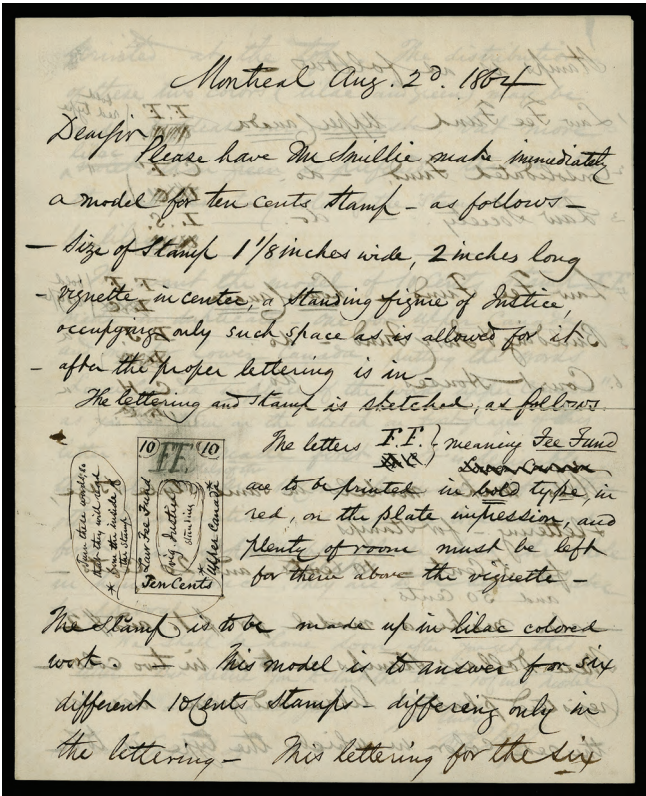 Montreal Aug. 2d. 1864
Dear Sir
Please have Mr Smillie make immediately
a model for ten cents stamp – as follows –
– Size of Stamp 1 1/8 inches wide, 2 inches long
– vignette in center, a standing figure of Justice,
occupying only such space as is allowed for it
– after the proper lettering is in.
The lettering and stamp is sketched, as follows.
10 FF 10
Law Fee Fund
Vig Justice
standing
Upper Canada *
Ten Cents
Turn these words, so
that they will read
* from the inside of
the stamp
The letters F.F. } meaning Fee Fund
are to be printed in bold type, in
red, on the plate impression, and
plenty of room must be left
for these above the vignette –
The stamp is to be made up in lilac colored
work. This model is to answer for six
different 10 Cents Stamps – differing only in
the lettering – This lettering for the six